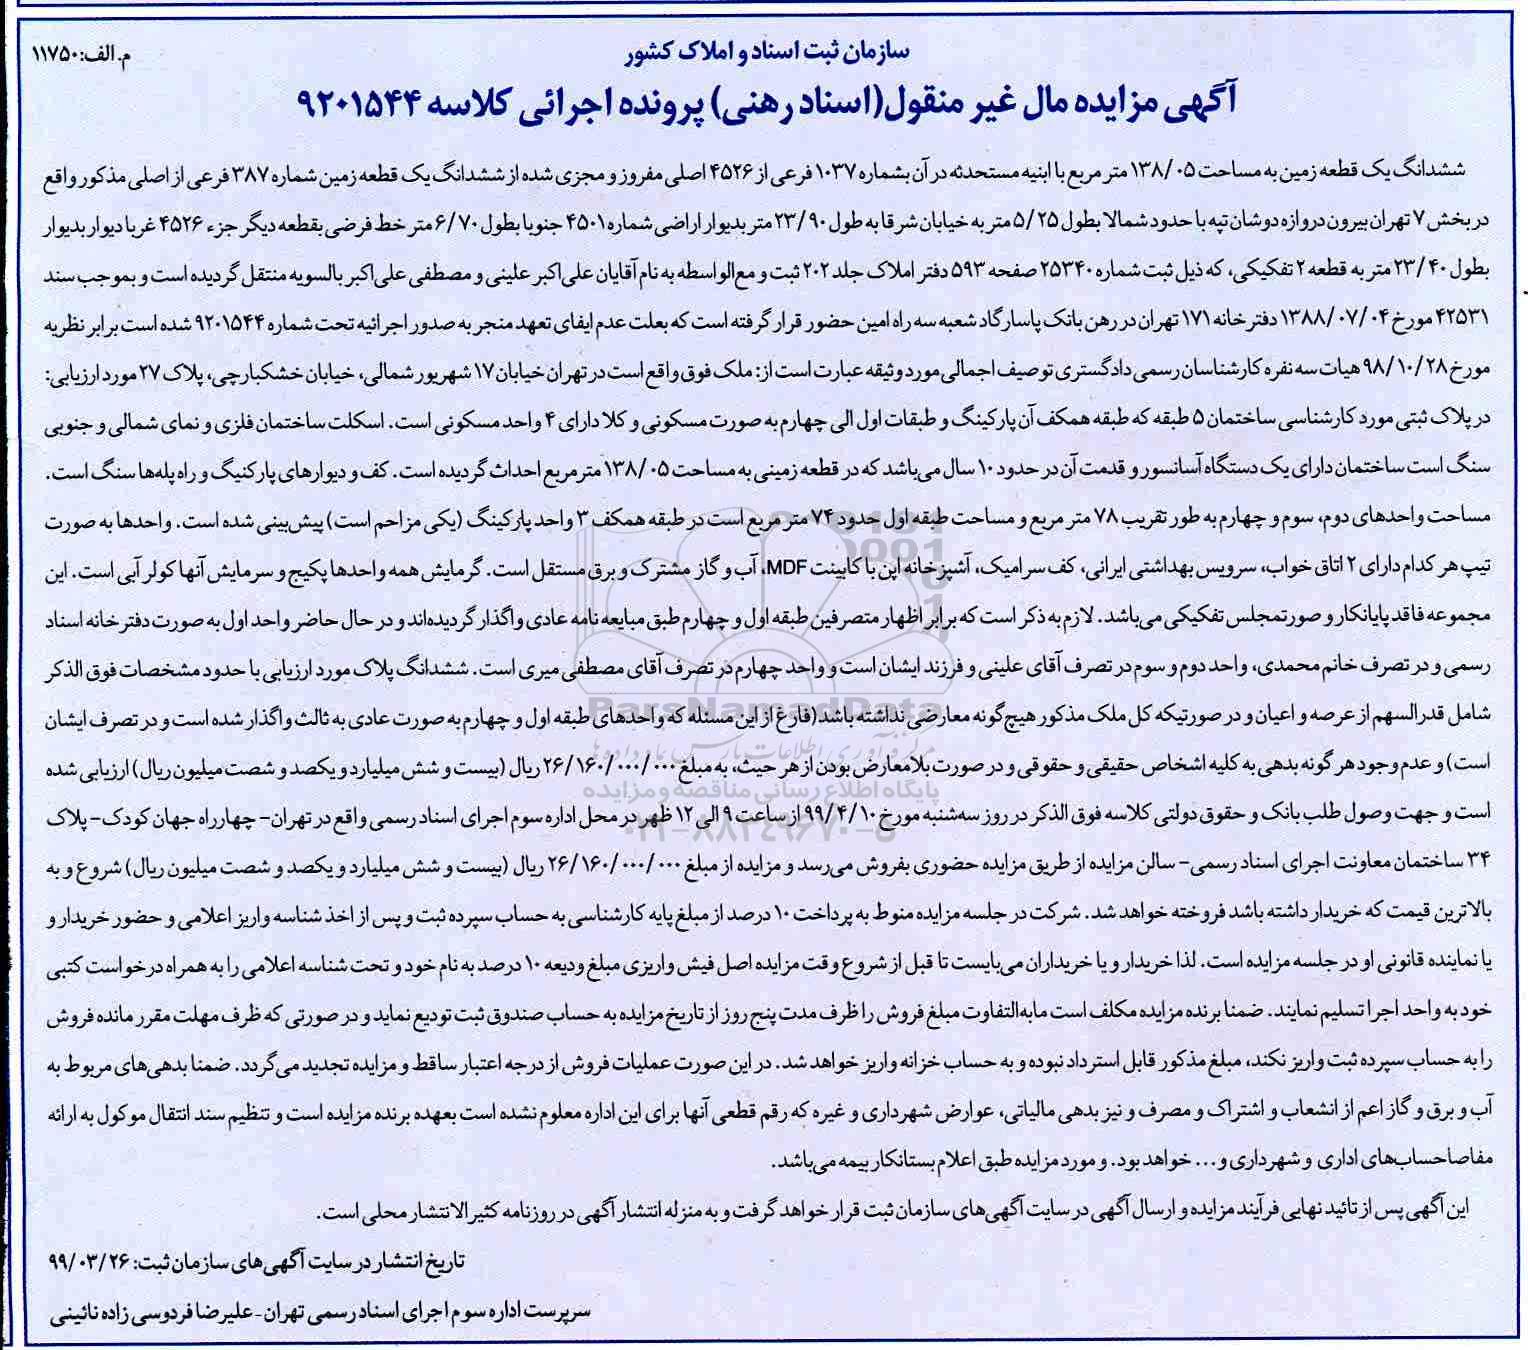 سازمان ثبت اسناد و املاک کشور
م. الف: ۱۱۷۵۰
آگهی مزایده مال غیر منقول(اسناد رهنی) پرونده اجرائی کلاسه ۹۲۰۱۵۴۴
ششدانگ یک قطعه زمین به مساحت ۱۳۸/۰۵ متر مربع با ابنیه مستحدثه در آن بشماره ۱۰۳۷ فرعی از ۴۵۲۶ اصلی مفروز و مجزی شده از ششدانگ یک قطعه زمین شماره ۳۸۷ فرعی از اصلی مذکور واقع
در بخش ۷ تهران بیرون دروازه دوشان تپه با حدود شمالا بطول ۵/۲۵ متر به خیابان شرقا به طول ۲۳/۹۰ متر بدیوار اراضی شماره ۴۵۰۱ جنوبا بطول ۶/۷۰ متر خط فرضی بقطعه دیگر جزء ۴۵۲۶ غربا دیوار بدیوار
بطول ۲۳/۴۰ متر به قطعه ۲ تفکیکی، که ذیل ثبت شماره ۲۵۳۴۰ صفحه ۵۹۳ دفتر املاک جلد ۲۰۲ ثبت و مع‌الواسطه به نام آقایان علی‌اکبر علینی و مصطفی علی‌اکبر بالسویه منتقل گردیده است و بموجب سند
۴۲۵۳۱ مورخ ۱۳۸۸/۰۷/۰۴ دفترخانه ۱۷۱ تهران در رهن بانک پاسارگاد شعبه سه راه امین حضور قرار گرفته است که بعلت عدم ایفای تعهد منجر به صدور اجرائیه تحت شماره ۹۲۰۱۵۴۴ شده است برابر نظریه
مورخ ۹۸/۱۰/۲۸ هیات سه نفره کارشناسان رسمی دادگستری توصیف اجمالی مورد وثیقه عبارت است از: ملک فوق واقع است در تهران خیابان ۱۷ شهریور شمالی، خیابان خشکبارچی، پلاک ۲۷ مورد ارزیابی:
در پلاک ثبتی مورد کارشناسی ساختمان ۵ طبقه که طبقه همکف آن پارکینگ و طبقات اول الی چهارم به صورت مسکونی و کلا دارای ۴ واحد مسکونی است. اسکلت ساختمان فلزی و نمای شمالی و جنوبی
سنگ است ساختمان دارای یک دستگاه آسانسور و قدمت آن در حدود ۱۰ سال می‌باشد که در قطعه زمینی به مساحت ۱۳۸/۰۵ مترمربع احداث گردیده است. کف و دیوارهای پارکنیگ و راه پله‌ها سنگ است.
مساحت واحدهای دوم، سوم و چهارم به طور تقریب ۷۸ متر مربع و مساحت طبقه اول حدود ۷۴ متر مربع است در طبقه همکف ۳ واحد پارکینگ (یکی مزاحم است) پیش‌بینی شده است. واحدها به صورت
تیپ هر کدام دارای ۲ اتاق خواب، سرویس بهداشتی ایرانی، کف سرامیک، آشپزخانه اپن با کابینت MDF، آب و گاز مشترک و برق مستقل است. گرمایش همه واحدها پکیج و سرمایش آنها کولر آبی است. این
مجموعه فاقد پایانکار و صورتمجلس تفکیکی می‌باشد. لازم به ذکر است که برابر اظهار متصرفین طبقه اول و چهارم طبق مبایعه نامه عادی واگذار گردیده‌اند و در حال حاضر واحد اول به صورت دفترخانه اسناد
رسمی و در تصرف خانم محمدی، واحد دوم و سوم در تصرف آقای علینی و فرزند ایشان است و واحد چهارم در تصرف آقای مصطفی میری است. ششدانگ پلاک مورد ارزیابی با حدود مشخصات فوق الذکر
شامل قدرالسهم از عرصه و اعیان و در صورتیکه کل ملک مذکور هیچ‌گونه معارضی نداشته باشد(فارغ از این مسئله که واحدهای طبقه اول و چهارم به صورت عادی به ثالث واگذار شده است و در تصرف ایشان
است) و عدم وجود هر گونه بدهی به کلیه اشخاص حقیقی و حقوقی و در صورت بلامعارض بودن از هر حیث، به مبلغ ۲۶/۱۶۰/۰۰۰/۰۰۰ ریال (بیست و شش میلیارد و یکصد و شصت میلیون ریال) ارزیابی شده
است و جهت وصول طلب بانک و حقوق دولتی کلاسه فوق الذکر در روز سه‌شنبه مورخ ۹۹/۴/۱۰ از ساعت ۹ الی ۱۲ ظهر در محل اداره سوم اجرای اسناد رسمی واقع در تهران- چهارراه جهان کودک- پلاک
۳۴ ساختمان معاونت اجرای اسناد رسمی- سالن مزایده از طریق مزایده حضوری بفروش می‌رسد و مزایده از مبلغ ۲۶/۱۶۰/۰۰۰/۰۰۰ ریال (بیست و شش میلیارد و یکصد و شصت میلیون ریال) شروع و به
بالاترین قیمت که خریدار داشته باشد فروخته خواهد شد. شرکت در جلسه مزایده منوط به پرداخت ۱۰ درصد از مبلغ پایه کارشناسی به حساب سپرده ثبت و پس از اخذ شناسه واریز اعلامی و حضور خریدار و
یا نماینده قانونی او در جلسه مزایده است. لذا خریدار و یا خریداران می‌بایست تا قبل از شروع وقت مزایده اصل فیش واریزی مبلغ ودیعه ۱۰ درصد به نام خود و تحت شناسه اعلامی را به همراه درخواست کتبی
خود به واحد اجرا تسلیم نمایند. ضمنا برنده مزایده مکلف است مابه‌التفاوت مبلغ فروش را ظرف مدت پنج روز از تاریخ مزایده به حساب صندوق ثبت تودیع نماید و در صورتی که ظرف مهلت مقرر مانده فروش
را به حساب سپرده ثبت واریز نکند، مبلغ مذکور قابل استرداد نبوده و به حساب خزانه واریز خواهد شد. در این صورت عملیات فروش از درجه اعتبار ساقط و مزایده تجدید می‌گردد. ضمنا بدهی‌های مربوط به
آب و برق و گاز اعم از انشعاب و اشتراک و مصرف و نیز بدهی مالیاتی، عوارض شهرداری و غیره که رقم قطعی آنها برای این اداره معلوم نشده است بعهده برنده مزایده است و تنظیم سند انتقال موکول به ارائه
مفاصاحساب‌های اداری و شهرداری و... خواهد بود. و مورد مزایده طبق اعلام بستانکار بیمه می‌باشد.
این آگهی پس از تائید نهایی فرآیند مزایده و ارسال آگهی در سایت آگهی‌های سازمان ثبت قرار خواهد گرفت و به منزله انتشار آگهی در روزنامه کثیرالانتشار محلی است.
تاریخ انتشار در سایت آگهی‌های سازمان ثبت: ۹۹/۰۳/۲۶
سرپرست اداره سوم اجرای اسناد رسمی تهران-علیرضا فردوسی زاده نائینی
ParsNamadData
مرکز فرآوری اطلاعات پارس نماد داده‌ها
پایگاه اطلاع رسانی مناقصه و مزایده
۰۲۱-۸۸۳۴۹۶۷۰-۵